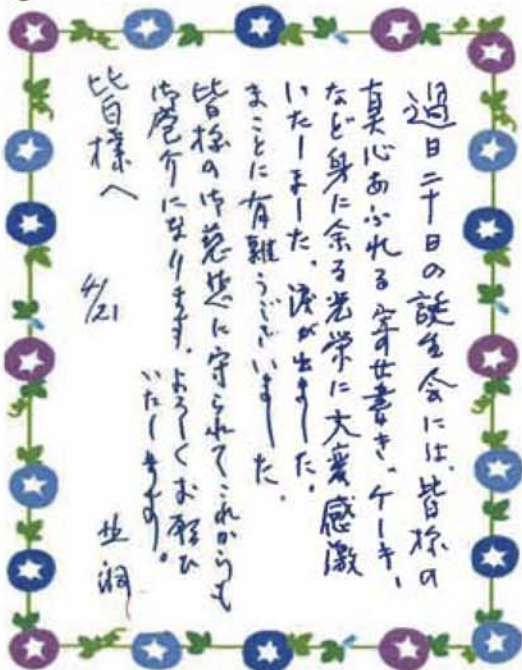 過日二十日の誕生会には、皆様の
真心あふれる寄せ書き、ケーキ、
など身に余る光栄に大変感激
いたしました。涙が出ました。
まことに有難うございました。
皆様の御慈悲に守られてこれからも
御厄介になります。よろしくお願い
いたします。
皆様へ
4/21